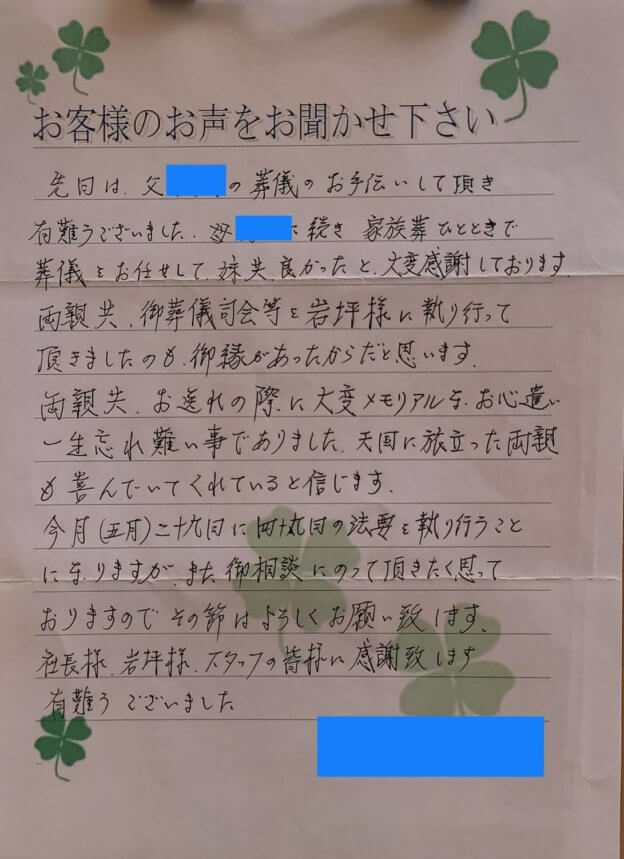 お客様のお声をお聞かせ下さい
先日は、父 の葬儀のお手伝いして頂き
有難うございました。母 に続き 家族葬ひとときで
葬儀をお任せして、妹共、良かったと、大変感謝しております。
両親共、御葬儀司会等を岩坪様に執り行って
頂きましたのも、御縁があったからだと思います。
両親共、お送れの際に大変メモリアルな、お心遣い
一生忘れ難い事でありました。天国に旅立った両親
も喜んでいてくれていると信じます。
今月(五月)二十九日に四十九日の法要を執り行うこと
になりますが、また御相談にのって頂きたく思って
おりますので その節はよろしくお願い致します。
社長様、岩坪様、スタッフの皆様に感謝致します
有難うございました